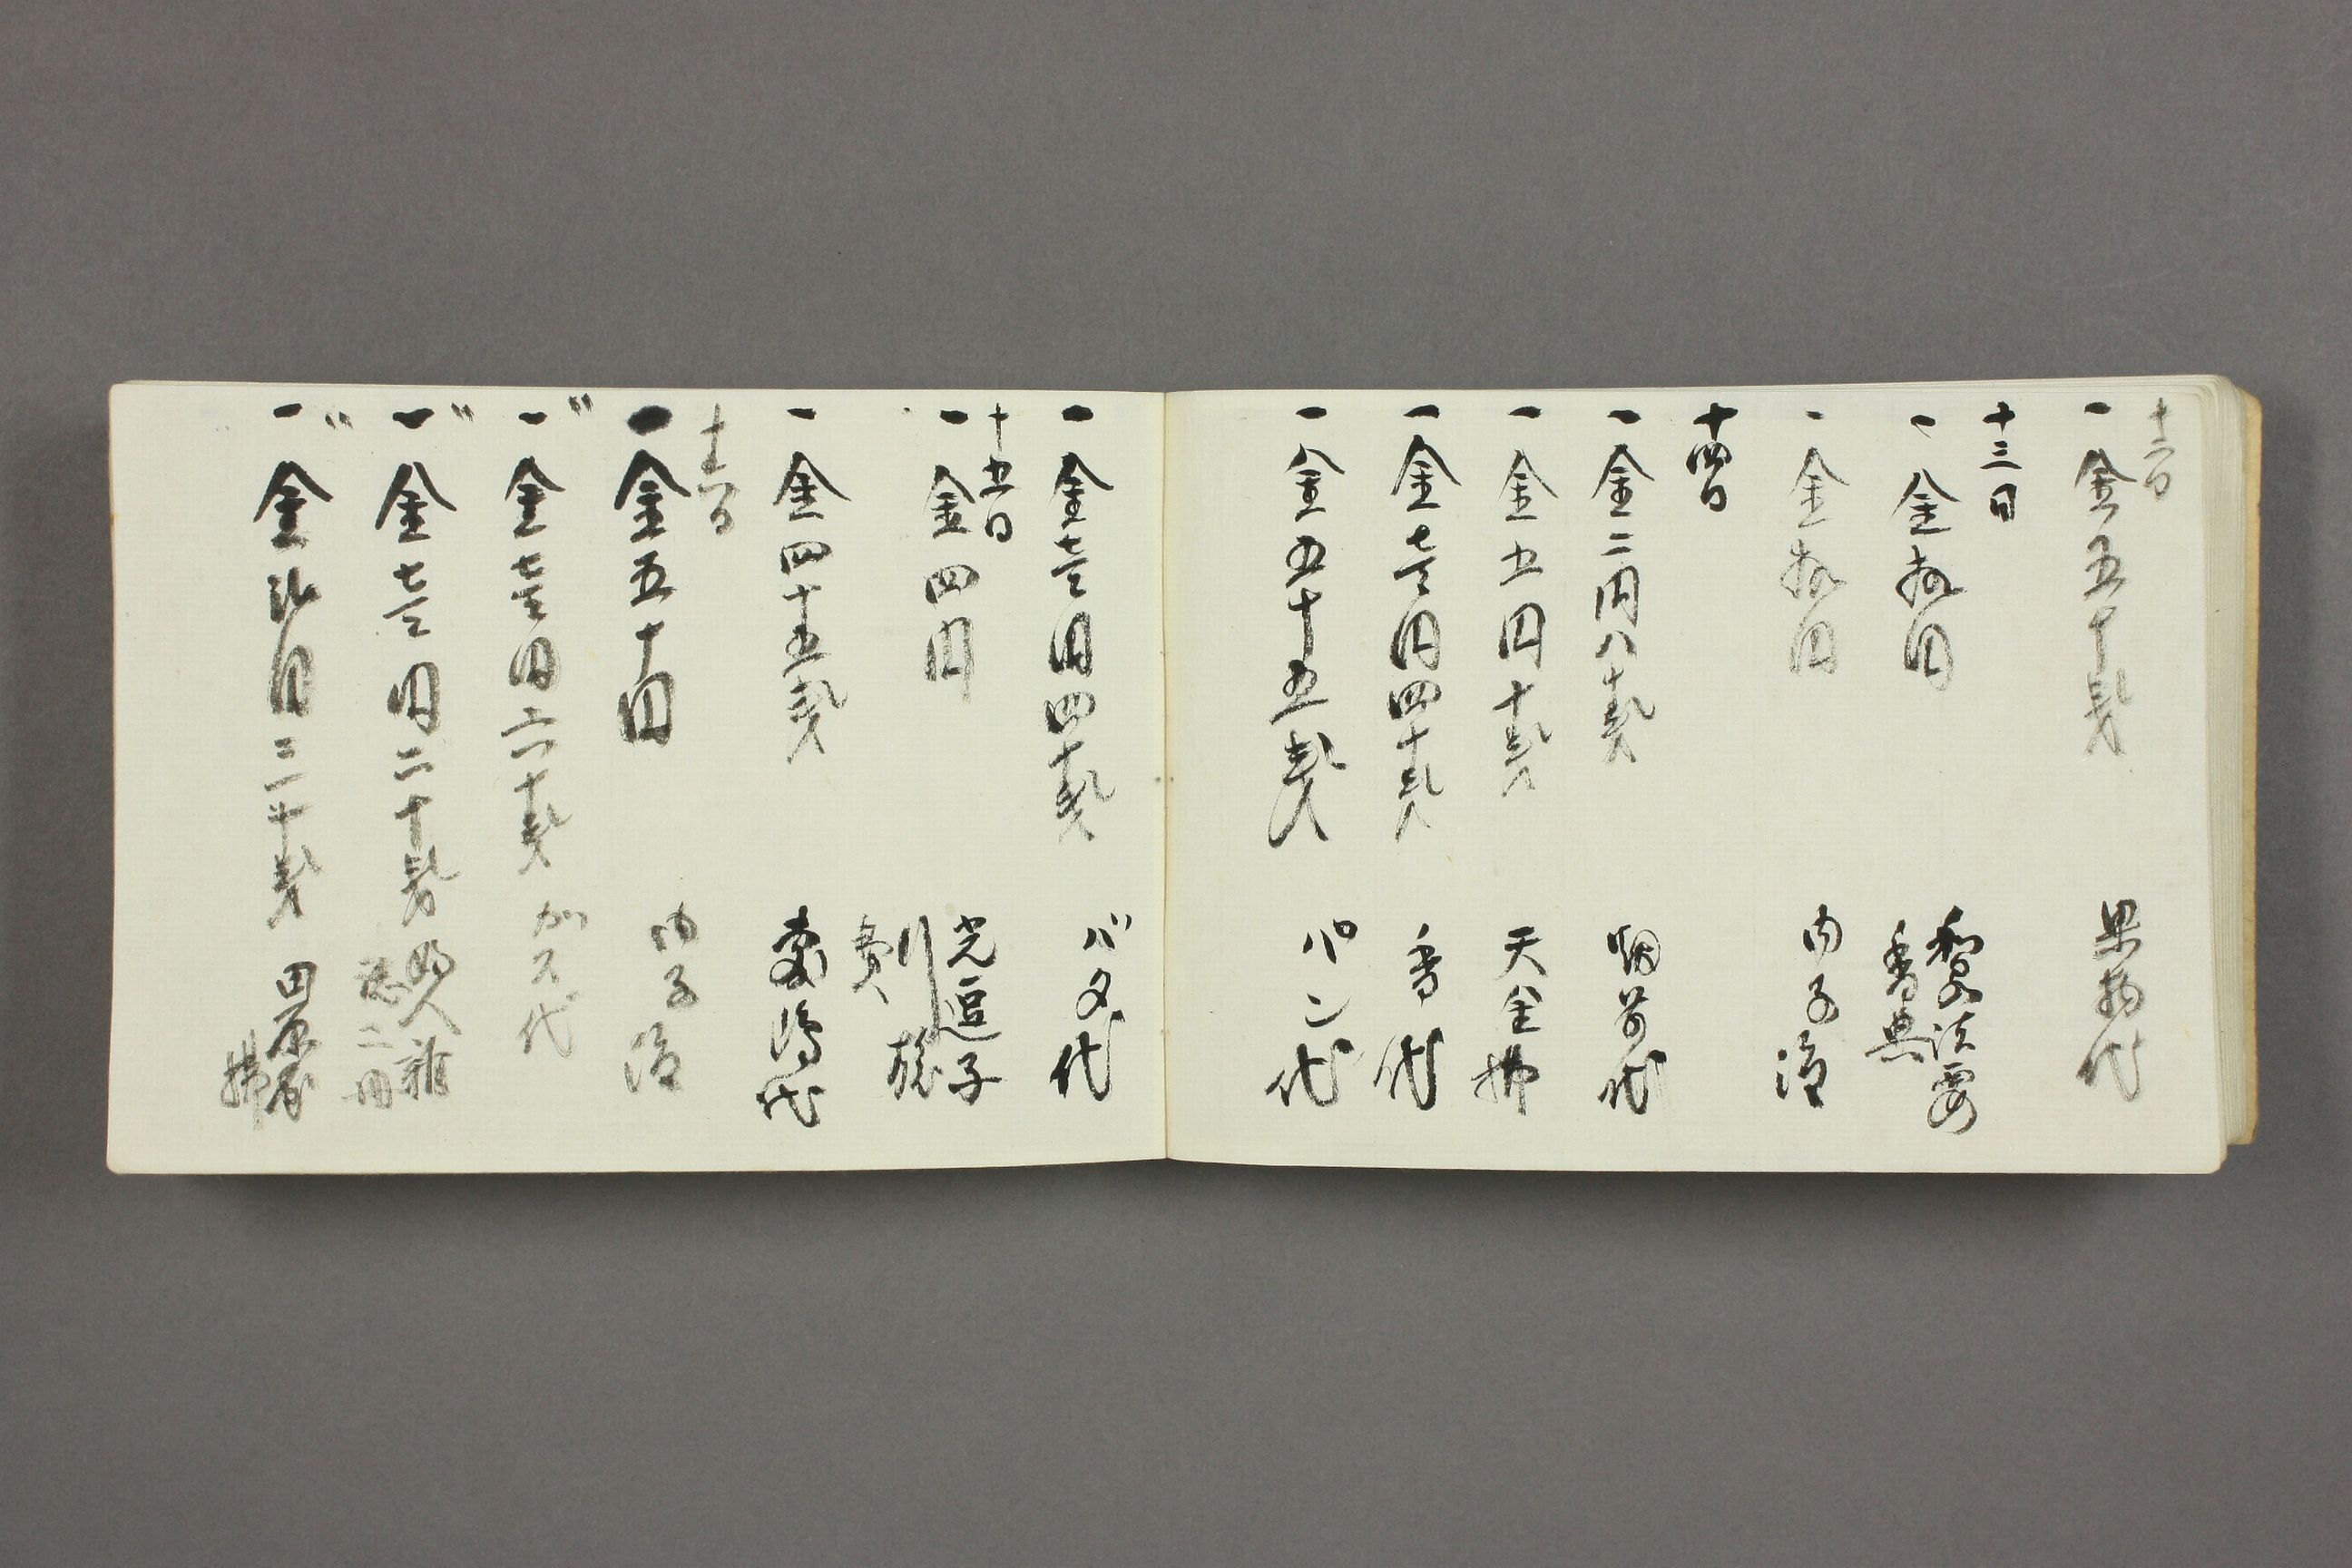 十二日
一金五十銭 果物代
十三日
一金拾円 香奠
一金拾円 内子渡
十四日
一金二円八十銭 烟草代
一金五円十銭 天金拂
一金壱円四十銭 香代
一金五十五銭 パン代
一金壱円四十銭 バタ代
十五日
一金四円 光逗子行旅費
一金四十五銭 代
十六日
一金五十円 内子渡
〃
一金壱円六十銭 カス代
〃
一金壱円二十銭 婦人雑誌二冊
〃
一金弐円三十銭 田原屋拂